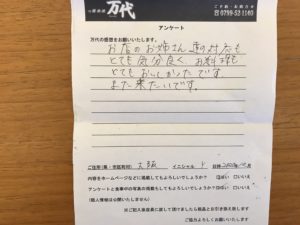 万代
ご予約・お問合せ
☎ 0799-52-1160
アンケート
万代の感想をお願いいたします。
お店のお姉さん達の対応も
とても気分良く、お料理も
とてもおいしかったです
また来たいです。
ご住所(県・市区町村) 大阪 イニシャル Y 日時
内容をホームページなどに掲載してもよろしいでしょうか? はい □いいえ
アンケートと食事中の写真の掲載もしてもよろしいでしょうか? はい □いいえ
(個人情報は公開いたしません)
ご協力よろしくお願いします